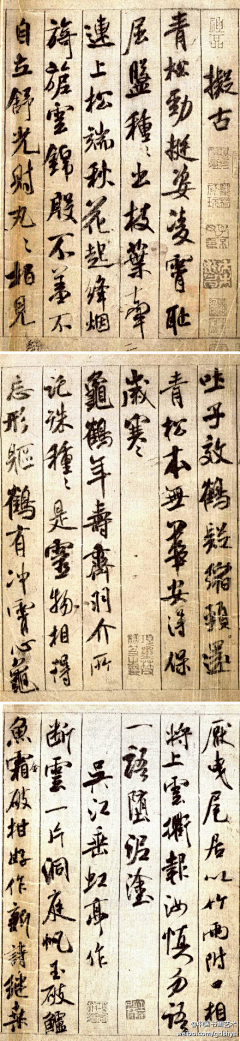 擬古
青松勁挺姿凌霄恥
屈盤種〻出枝葉牽
連上松端秋花起絳烟
旖旎雲錦殷不羞不
自立舒光射丸〻柏見
吐子效鶴疑縮頸還
青松本無華安得保
歲寒〻
龜鶴年壽齊羽介所
託殊種〻是靈物相得
忘形軀鶴有沖霄心龜
厭曳尾居以竹兩附口相
將上雲衢報汝慎勿語
一語墮泥塗
吳江垂虹亭作
斷雲一片洞庭帆玉破鱸
魚霜破柑好作新詩繼桑